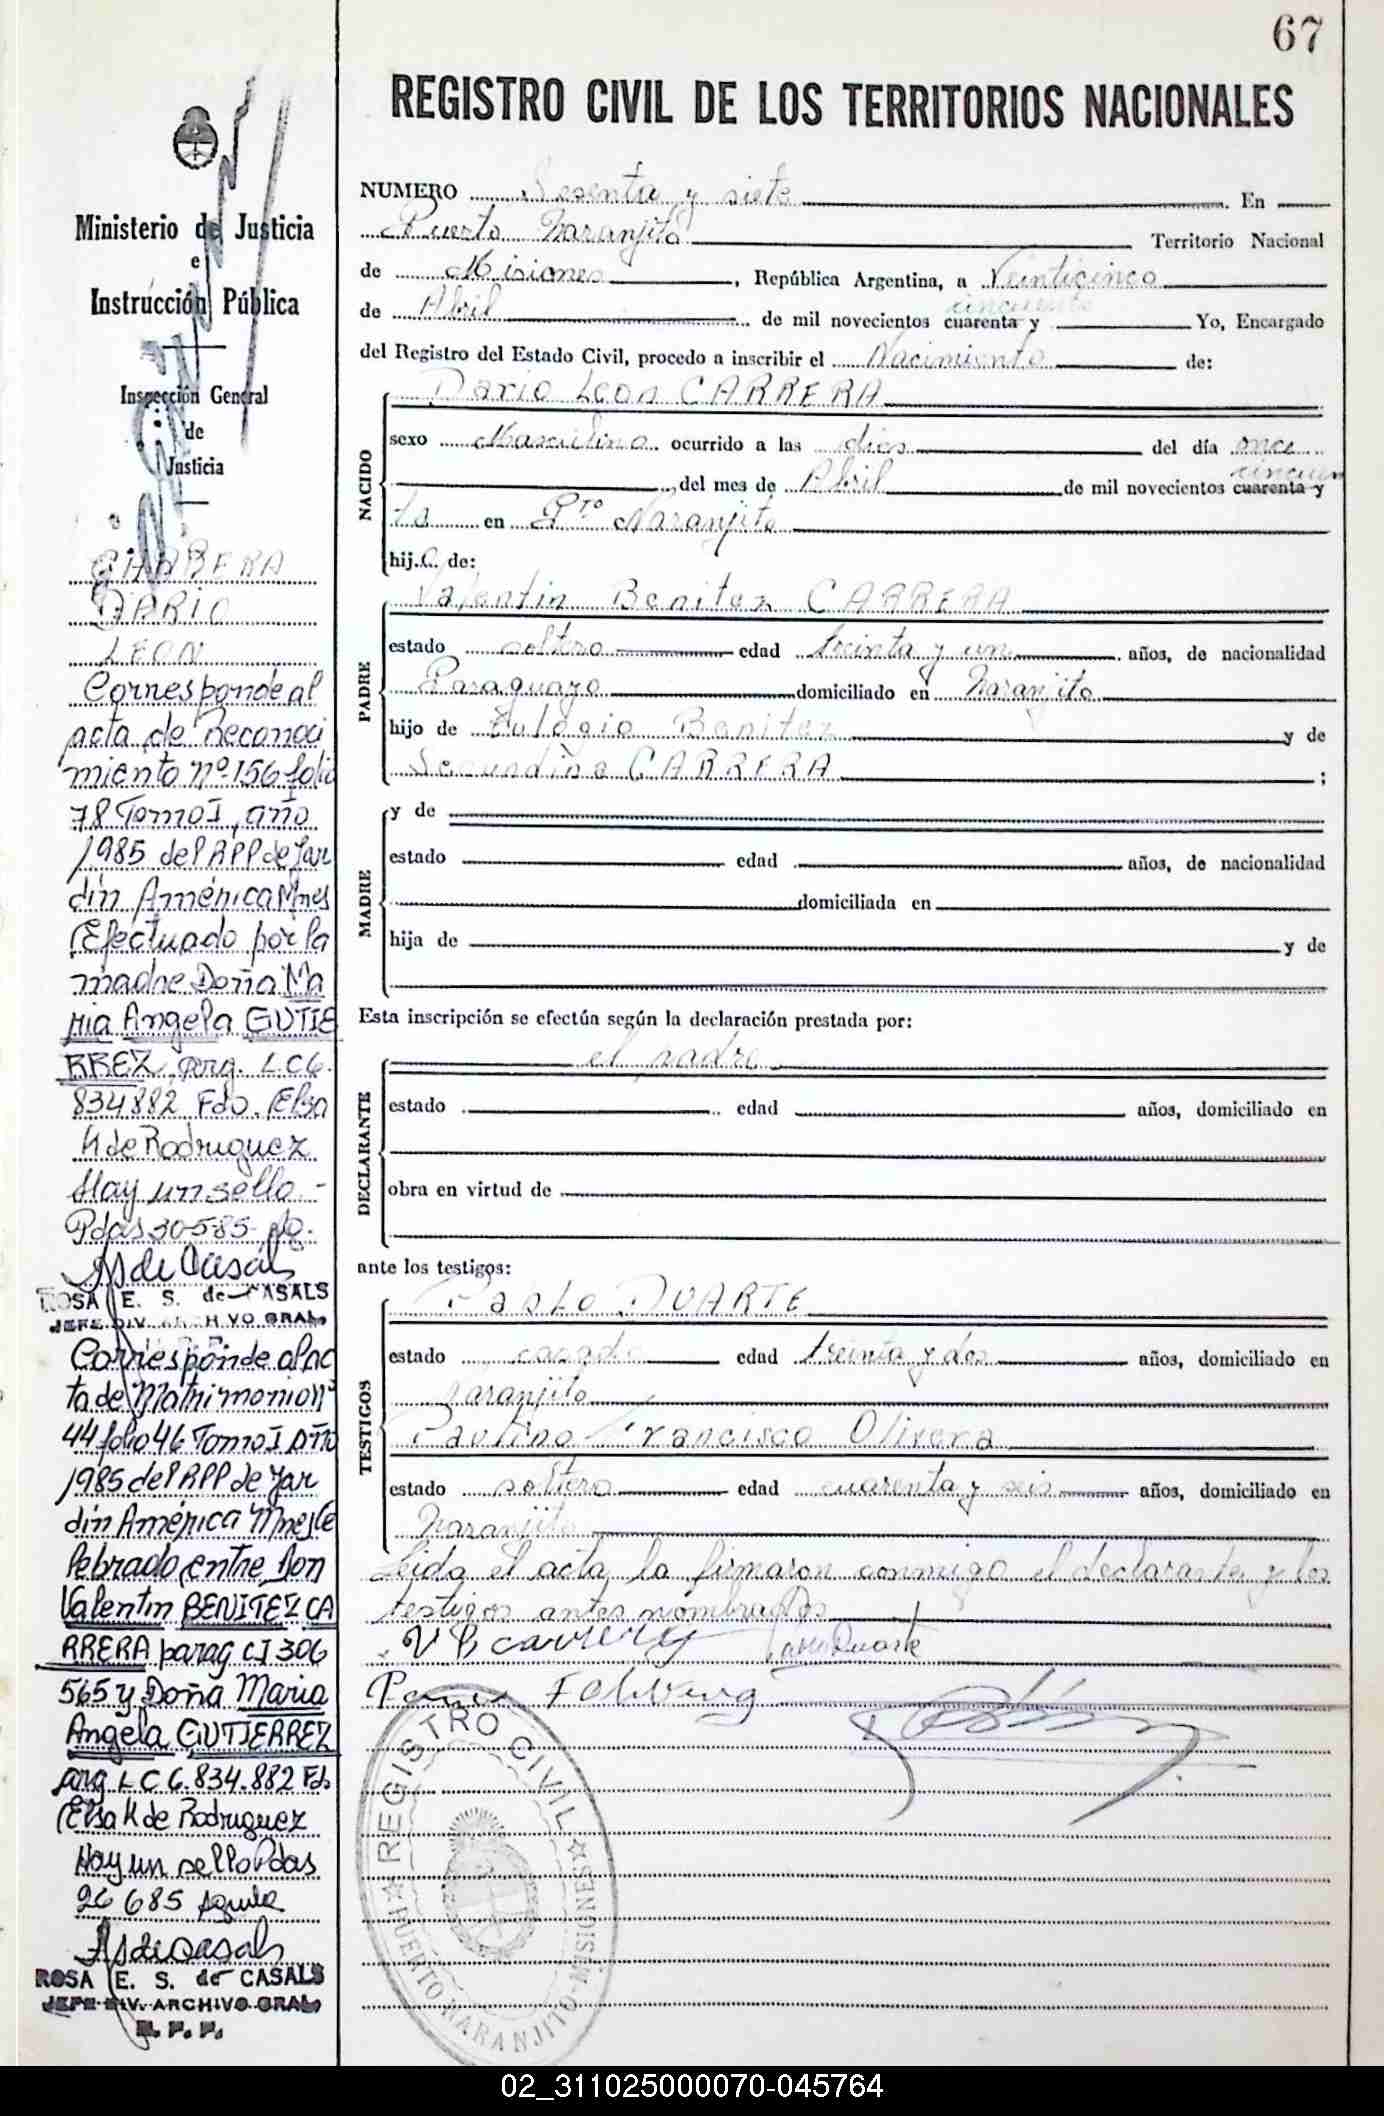 67
REGISTRO CIVIL DE LOS TERRITORIOS NACIONALES
Ministerio de Justicia
e
Instrucción Pública
Inspección General
de
Justicia
CARRERA
DARIO
LEON
Corresponde al
acta de Reconoci
miento nº 156 folio
78 Tomo I, año
1985 del RPP de Jar
dín América Mnes
Efectuado por la
madre Doña Ma
ria Angela GUTIE
RREZ, arg. L C 6.
834882 Fdo. Elsa
K de Rodriguez
Hay un sello -
Pdas 30-585
AS de Casals
ROSA E. S. de CASALS
JEFE DIV. ARCHIVO GRAL
Corresponde al ac
ta de Matrimonio nº
44 folio 46 Tomo I Año
1985 del RPP de Jar
dín América Mnes Ce
lebrado entre Don
Valentin BENITEZ CA
RRERA parag CI 306
565 y Doña Maria
Angela GUTIERREZ
arg L C 6.834.882 Fdo
Elsa K de Rodriguez
Hay un sello Pdas
26 685
AS de Casals
ROSA E. S. de CASALS
JEFE DIV. ARCHIVO GRAL
R. P. P.
NUMERO Sesenta y siete En
Puerto Naranjito Territorio Nacional
de Misiones, República Argentina, a Veinticinco
cincuenta
de Abril de mil novecientos cuarenta y Yo, Encargado
del Registro del Estado Civil, procedo a inscribir el Nacimiento de:
NACIDO
Dario Leon CARRERA
sexo Masculino ocurrido a las dies del día once
cincuen
del mes de Abril de mil novecientos cuarenta y
ta en Pto Naranjito
hij.o. de:
PADRE
Valentin Benitez CARRERA
estado soltero edad treinta y un años, de nacionalidad
Paraguayo domiciliado en Naranjito
hijo de Eulogio Benitez y de
Secundina CARRERA ;
MADRE
y de
estado edad años, de nacionalidad
domiciliada en
hija de y de
Esta inscripción se efectúa según la declaración prestada por:
DECLARANTE
el padre
estado edad años, domiciliado en
obra en virtud de
ante los testigos:
TESTIGOS
Pablo DUARTE
estado casado edad treinta y dos años, domiciliado en
Naranjito
Paulino Francisco Olivera
estado soltero edad cuarenta y seis años, domiciliado en
Naranjito
Leida el acta, la firmaron conmigo el declarante y los
testigos antes nombrados
V B Carrera Pablo Duarte
REGISTRO CIVIL
PUERTO NARANJITO-MISIONES
02_311025000070-045764